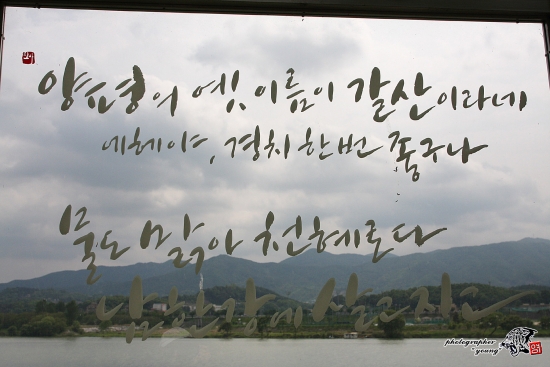 양평의 옛이름이 갈산이라네
에헤야, 경치한번 좋구나
물도 맑아 천혜로다
남한강에 살고지고
photographer
"young"